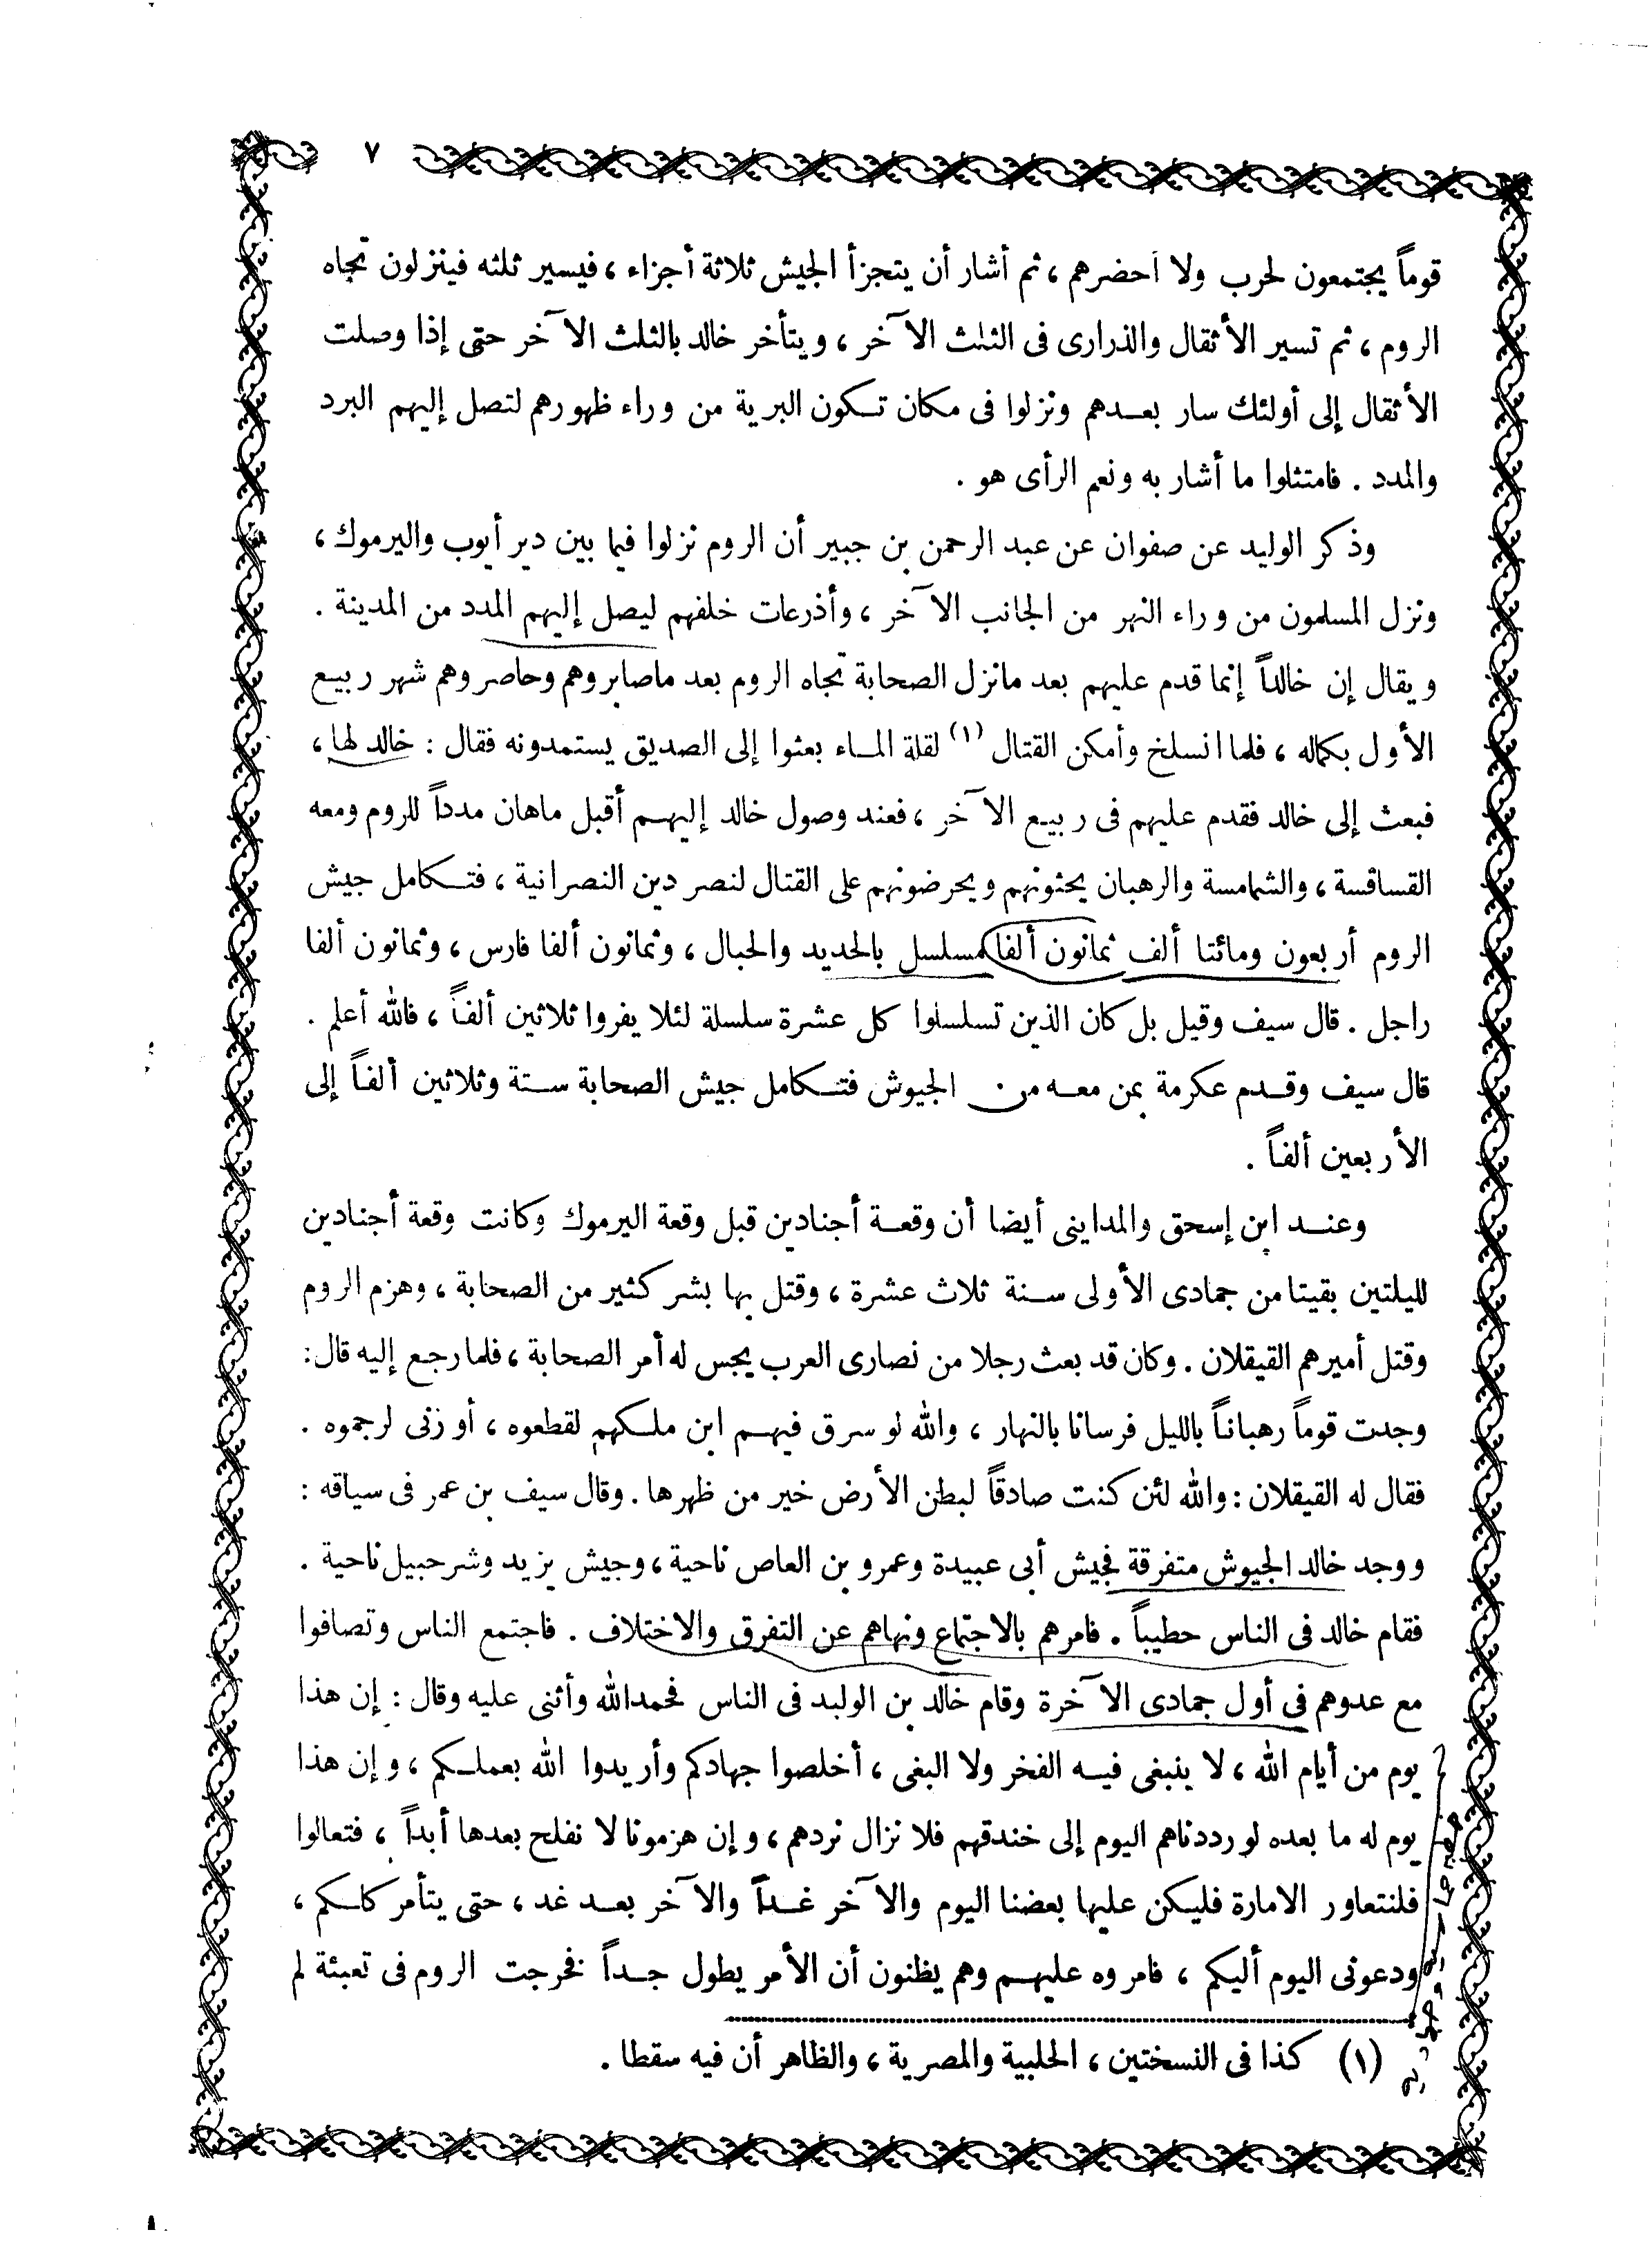 ٧
قوماً يجتمعون لحرب ولا أحضرهم ، ثم أشار أن يتجزأ الجيش ثلاثة أجزاء ، فيسير ثلثه فينزلون تجاه
الروم ، ثم تسير الأثقال والذرارى فى الثلث الآخر ، ويتأخر خالد بالثلث الآخر حتى إذا وصلت
الأثقال إلى أولئك سار بعدهم ونزلوا فى مكان تكون البرية من وراء ظهورهم لتصل إليهم البرد
والمدد . فامتثلوا ما أشار به ونعم الرأى هو .
وذكر الوليد عن صفوان عن عبد الرحمن بن جبير أن الروم نزلوا فيما بين دير أيوب واليرموك ،
ونزل المسلمون من وراء النهر من الجانب الآخر ، وأذرعات خلفهم ليصل إليهم المدد من المدينة .
ويقال إن خالداً إنما قدم عليهم بعد مانزل الصحابة تجاه الروم بعد ماصابروهم وحاصروهم شهر ربيع
الأول بكماله ، فلما انسلخ وأمكن القتال (١) لقلة الماء بعثوا إلى الصديق يستمدونه فقال : خالد لها ،
فبعث إلى خالد فقدم عليهم فى ربيع الآخر ، فعند وصول خالد إليهم أقبل ماهان مدداً للروم ومعه
القساقسة ، والشمامسة والرهبان يحثونهم ويحرضونهم على القتال لنصر دين النصرانية ، فتكامل جيش
الروم أربعون ومائتا ألف ثمانون ألفا مسلسل بالحديد والحبال ، وثمانون ألفا فارس ، وثمانون ألفا
راجل . قال سيف وقيل بل كان الذين تسلسلوا كل عشرة سلسلة لئلا يفروا ثلاثين ألفاً ، فالله أعلم .
قال سيف وقدم عكرمة بمن معه من الجيوش فتكامل جيش الصحابة ستة وثلاثين ألفاً إلى
الأربعين ألفاً .
وعند ابن إسحق والمداينى أيضا أن وقعة أجنادين قبل وقعة اليرموك وكانت وقعة أجنادين
لليلتين بقيتا من جمادى الأولى سنة ثلاث عشرة ، وقتل بها بشر كثير من الصحابة ، وهزم الروم
وقتل أميرهم القيقلان . وكان قد بعث رجلا من نصارى العرب يجس له أمر الصحابة ، فلما رجع إليه قال :
وجدت قوماً رهباناً بالليل فرسانا بالنهار ، والله لو سرق فيهم ابن ملكهم لقطعوه ، أو زنى لرجموه .
فقال له القيقلان : والله لئن كنت صادقاً لبطن الأرض خير من ظهرها . وقال سيف بن عمر فى سياقه :
ووجد خالد الجيوش متفرقة فجيش أبى عبيدة وعمرو بن العاص ناحية ، وجيش يزيد وشرحبيل ناحية .
فقام خالد فى الناس خطيباً . فامرهم بالاجتماع ونهاهم عن التفرق والاختلاف . فاجتمع الناس وتصافوا
مع عدوهم فى أول جمادى الآخرة وقام خالد بن الوليد فى الناس فحمدالله وأثنى عليه وقال : إن هذا
يوم من أيام الله ، لا ينبغى فيه الفخر ولا البغى ، أخلصوا جهادكم وأريدوا الله بعملكم ، وإن هذا
يوم له ما بعده لو رددناهم اليوم إلى خندقهم فلا نزال نردهم ، وإن هزمونا لا نفلح بعدها أبداً ، فتعالوا
فلنتعاور الامارة فليكن عليها بعضنا اليوم والآخر غداً والآخر بعد غد ، حتى يتأمر كلكم ،
ودعونى اليوم أليكم ، فامروه عليهم وهم يظنون أن الأمر يطول جداً فخرجت الروم فى تعبئة لم
(١) كذا فى النسختين ، الحلبية والمصرية ، والظاهر أن فيه سقطا .